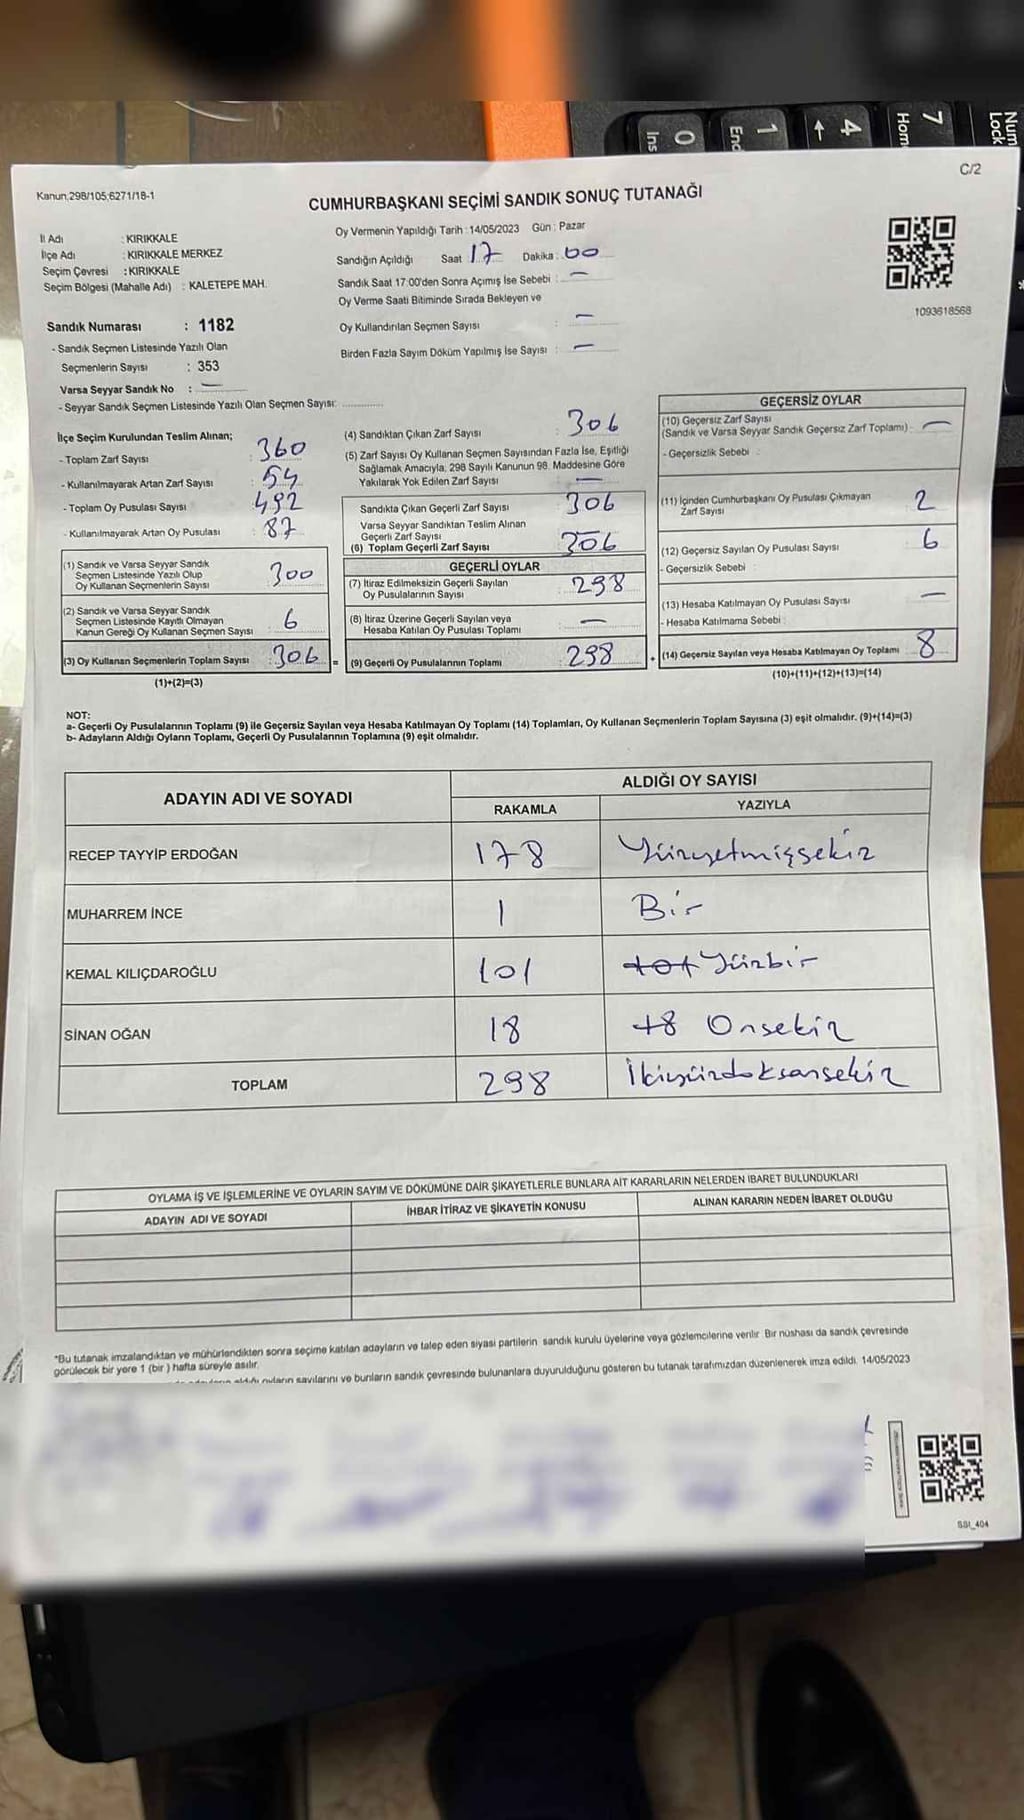 Num
Lock
7
Hom
4
1
End
0
Ins
C/2
Kanun;298/105;6271/18-1
CUMHURBAŞKANI SEÇİMİ SANDIK SONUÇ TUTANAĞI
İl Adı : KIRIKKALE
İlçe Adı : KIRIKKALE MERKEZ
Seçim Çevresi : KIRIKKALE
Seçim Bölgesi (Mahalle Adı) : KALETEPE MAH.
Sandık Numarası : 1182
- Sandık Seçmen Listesinde Yazılı Olan
Seçmenlerin Sayısı : 353
Varsa Seyyar Sandık No : —
- Seyyar Sandık Seçmen Listesinde Yazılı Olan Seçmen Sayısı: .............
Oy Vermenin Yapıldığı Tarih : 14/05/2023 Gün : Pazar
Sandığın Açıldığı Saat 17 Dakika : 00
Sandık Saat 17:00'den Sonra Açımış İse Sebebi : —
Oy Verme Saati Bitiminde Sırada Bekleyen ve
Oy Kullandırılan Seçmen Sayısı : —
Birden Fazla Sayım Döküm Yapılmış İse Sayısı : —
1093618568
İlçe Seçim Kurulundan Teslim Alınan;
- Toplam Zarf Sayısı : 360
- Kullanılmayarak Artan Zarf Sayısı : 54
- Toplam Oy Pusulası Sayısı : 492
- Kullanılmayarak Artan Oy Pusulası : 87
(1) Sandık ve Varsa Seyyar Sandık
Seçmen Listesinde Yazılı Olup
Oy Kullanan Seçmenlerin Sayısı : 300
(2) Sandık ve Varsa Seyyar Sandık
Seçmen Listesinde Kayıtlı Olmayan
Kanun Gereği Oy Kullanan Seçmen Sayısı : 6
(3) Oy Kullanan Seçmenlerin Toplam Sayısı : 306 =
(1)+(2)=(3)
(4) Sandıktan Çıkan Zarf Sayısı : 306
(5) Zarf Sayısı Oy Kullanan Seçmen Sayısından Fazla İse, Eşitliği
Sağlamak Amacıyla, 298 Sayılı Kanunun 98. Maddesine Göre
Yakılarak Yok Edilen Zarf Sayısı —
Sandıkta Çıkan Geçerli Zarf Sayısı : 306
Varsa Seyyar Sandıktan Teslim Alınan
Geçerli Zarf Sayısı
(6) Toplam Geçerli Zarf Sayısı : 306
GEÇERLİ OYLAR
(7) İtiraz Edilmeksizin Geçerli Sayılan
Oy Pusulalarının Sayısı : 298
(8) İtiraz Üzerine Geçerli Sayılan veya
Hesaba Katılan Oy Pusulası Toplamı : —
(9) Geçerli Oy Pusulalarının Toplamı : 298 +
GEÇERSİZ OYLAR
(10) Geçersiz Zarf Sayısı
(Sandık ve Varsa Seyyar Sandık Geçersiz Zarf Toplamı) : —
- Geçersizlik Sebebi :
(11) İçinden Cumhurbaşkanı Oy Pusulası Çıkmayan
Zarf Sayısı : 2
(12) Geçersiz Sayılan Oy Pusulası Sayısı : 6
- Geçersizlik Sebebi :
(13) Hesaba Katılmayan Oy Pusulası Sayısı : —
- Hesaba Katılmama Sebebi :
(14) Geçersiz Sayılan veya Hesaba Katılmayan Oy Toplamı : 8
(10)+(11)+(12)+(13)=(14)
NOT:
a- Geçerli Oy Pusulalarının Toplamı (9) ile Geçersiz Sayılan veya Hesaba Katılmayan Oy Toplamı (14) Toplamları, Oy Kullanan Seçmenlerin Toplam Sayısına (3) eşit olmalıdır. (9)+(14)=(3)
b- Adayların Aldığı Oyların Toplamı, Geçerli Oy Pusulalarının Toplamına (9) eşit olmalıdır.
ADAYIN ADI VE SOYADI
ALDIĞI OY SAYISI
RAKAMLA YAZIYLA
RECEP TAYYİP ERDOĞAN 178 Yüzyetmişsekiz
MUHARREM İNCE 1 Bir
KEMAL KILIÇDAROĞLU 101 101 Yüzbir
SİNAN OĞAN 18 18 Onsekiz
TOPLAM 298 İkiyüzdoksansekiz
OYLAMA İŞ VE İŞLEMLERİNE VE OYLARIN SAYIM VE DÖKÜMÜNE DAİR ŞİKAYETLERLE BUNLARA AİT KARARLARIN NELERDEN İBARET BULUNDUKLARI
ADAYIN ADI VE SOYADI İHBAR İTİRAZ VE ŞİKAYETİN KONUSU ALINAN KARARIN NEDEN İBARET OLDUĞU
*Bu tutanak imzalandıktan ve mühürlendikten sonra seçime katılan adayların ve talep eden siyasi partilerin sandık kurulu üyelerine veya gözlemcilerine verilir. Bir nüshası da sandık çevresinde
görülecek bir yere 1 (bir) hafta süreyle asılır.
aldığı oyların sayılarını ve bunların sandık çevresinde bulunanlara duyurulduğunu gösteren bu tutanak tarafımızdan düzenlenerek imza edildi. 14/05/2023
SSI_404